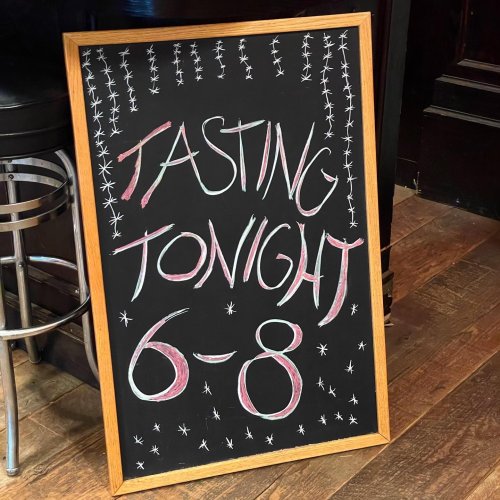 TASTING
TONIGHT
6-8